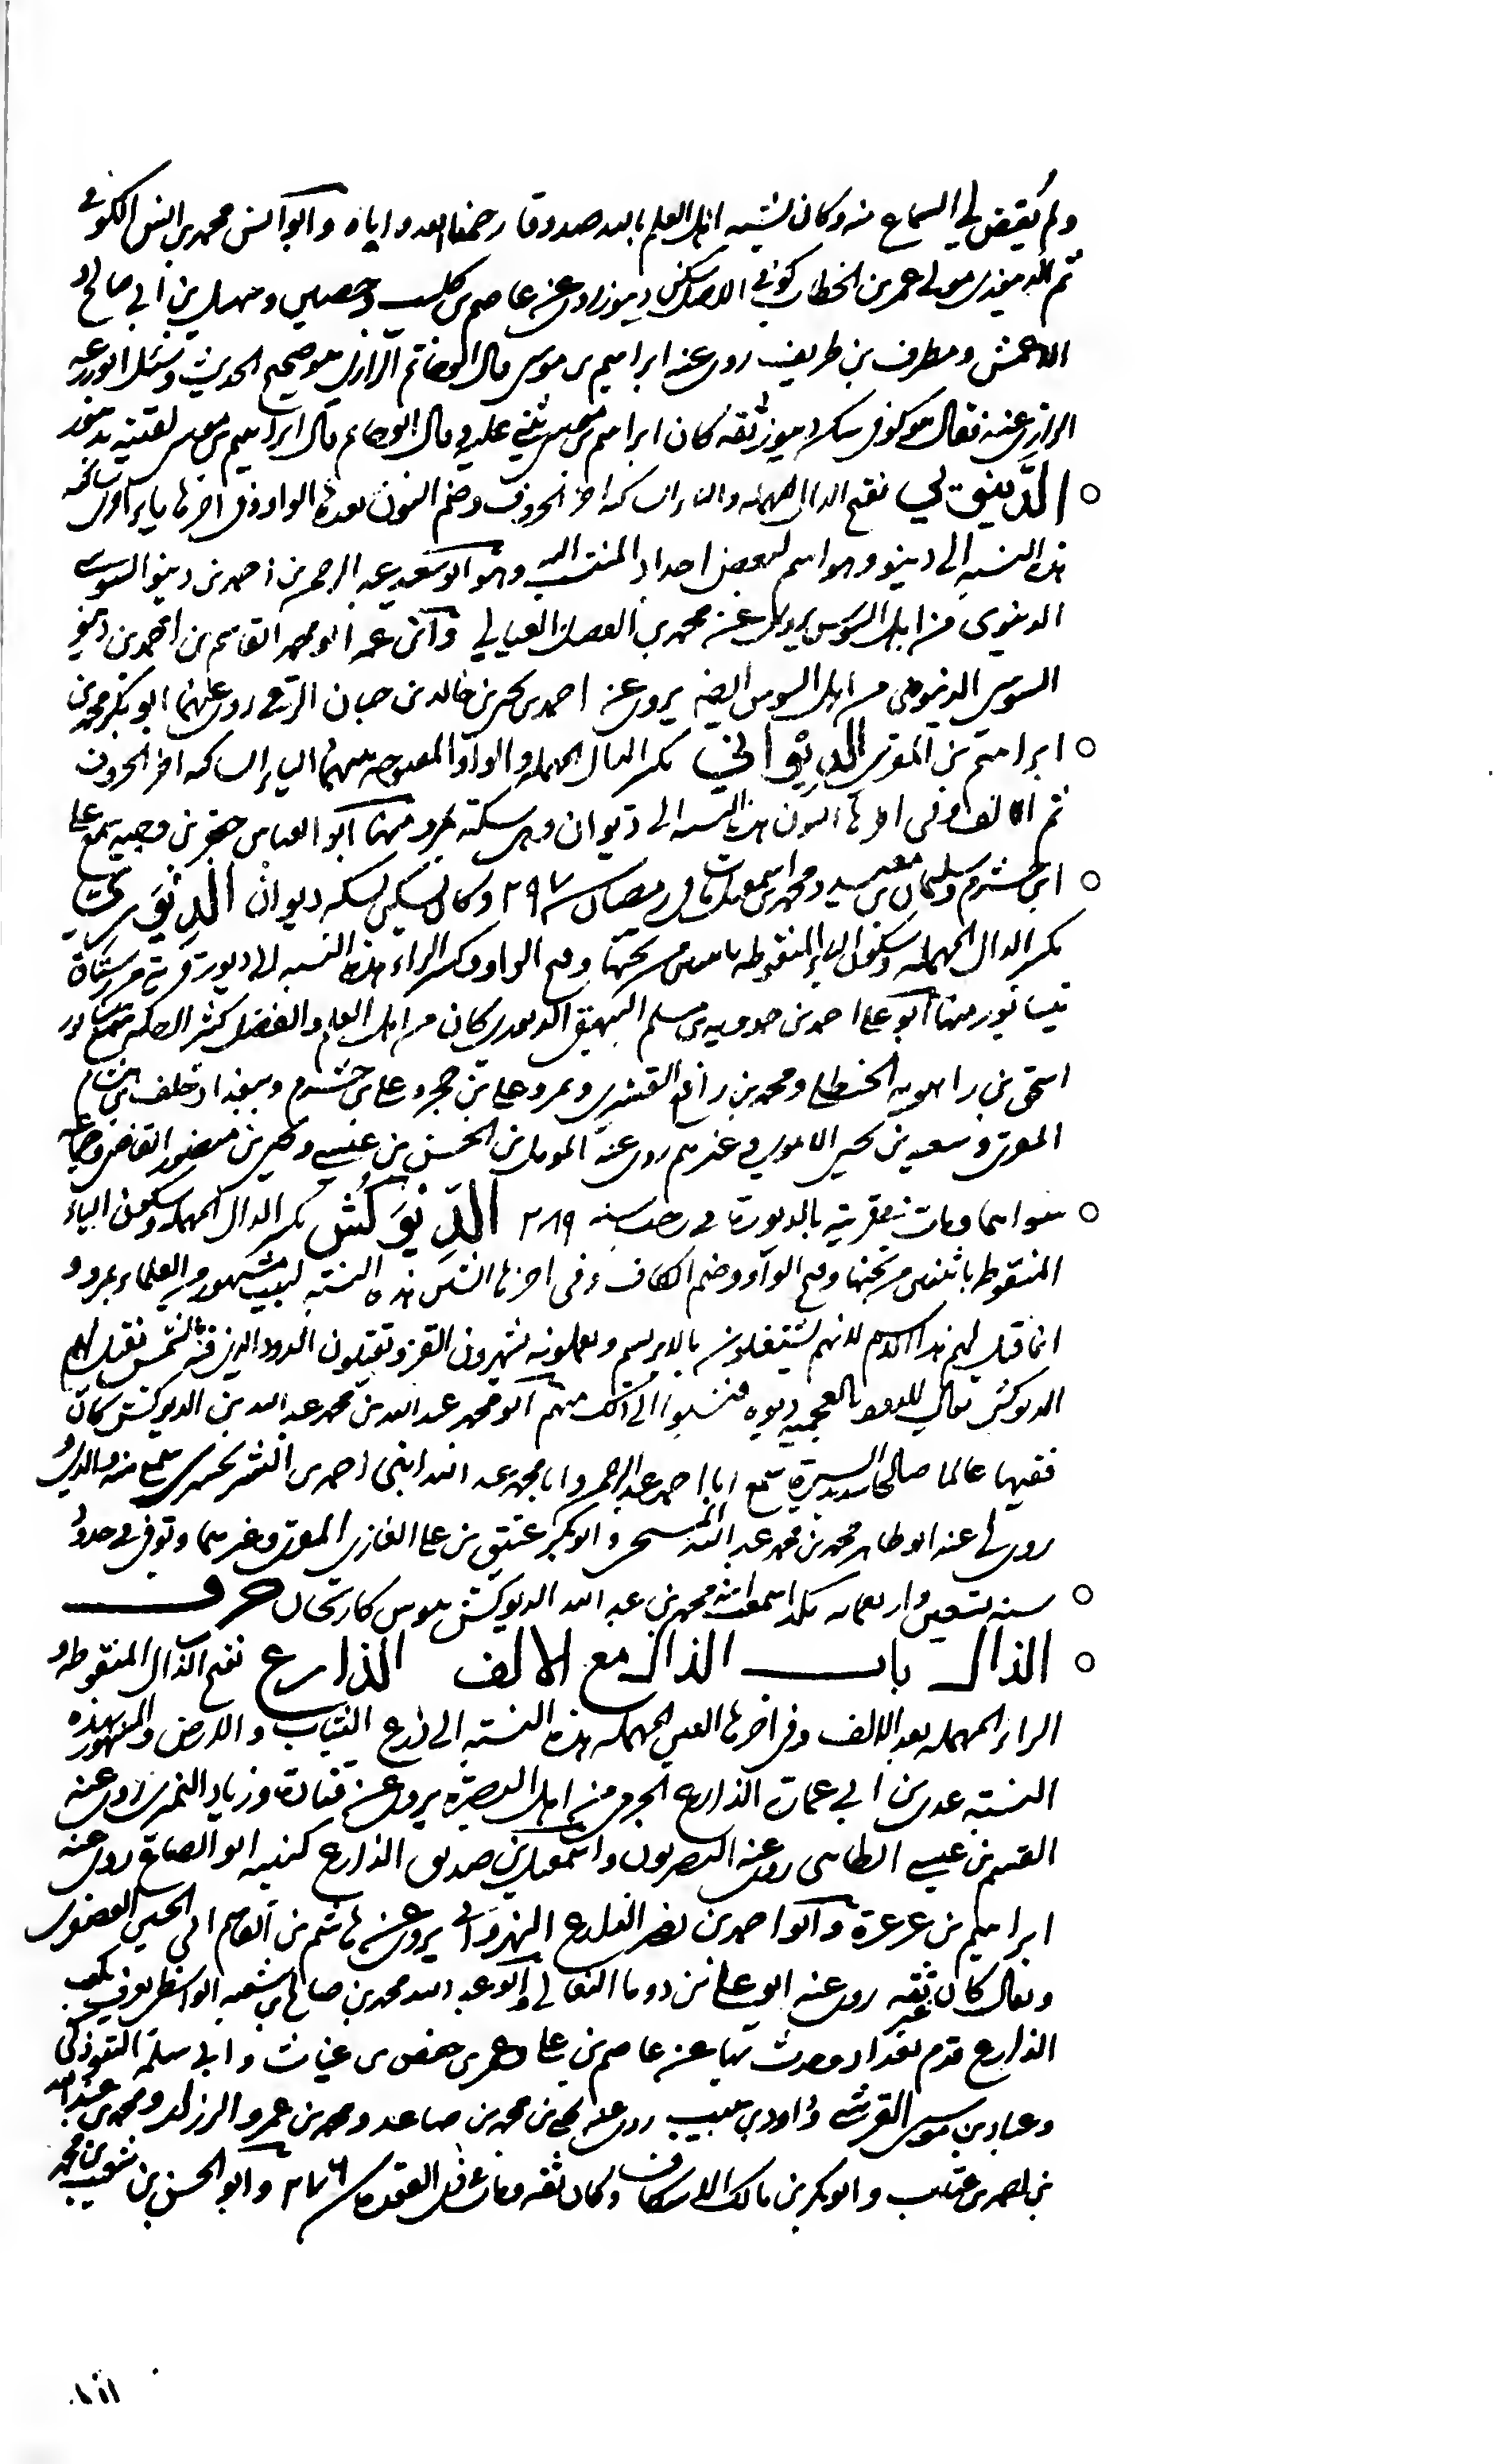 ولم يقض لي السماع منه وكان يشبه اهل العلم بالله صدوقا رحمنا الله واياه وابو انس محمد بن انس الكوفي
ثم الدينوري مولى عمر بن الخطاب كوفي الاصل سكن دينور روى عن عاصم بن كليب وحصين وسهيل بن ابي صالح و
الاعمش ومطرف بن طريف روى عنه ابراهيم بن موسى قال ابو حاتم الرازي هو صحيح الحديث وسئل ابو زرعة
الرازي عنه فقال هو كوفي سكن دينور ثقة كان ابراهيم بن موسى يثني عليه قال ابو حاتم قال ابراهيم بن موسى لقيته بدينور
الدينوبي بفتح الدال المهملة والياء الساكنة اخر الحروف وضم النون بعدها الواو وفي اخرها ياء اخرى
هذه النسبة الى دينو وهو اسم لبعض اجداد المنتسب اليه وهو ابو سعيد عبد الرحمن بن احمد بن دينو السوسي
الدينوي من اهل السوس يروي عن محمد بن الفضل وابن عمه ابو محمد القاسم بن احمد بن دينو
السوسي الدينوي من اهل السوس ايضا يروي عن احمد بن يحيى بن خالد بن حيان الرقي روى عنهما ابو بكر محمد بن
ابراهيم بن المقرئ الديواني بكسر الدال المهملة والواو المفتوحة بينهما الياء الساكنة اخر الحروف
ثم الالف وفي اخرها النون هذه النسبة الى ديوان وهي سكة بمرو منها ابو العباس جعفر بن وجيه سمع علي
ابن خشرم وسليمان بن معبد ومحمد بن اسمعيل مات في رمضان سنة ٢٩٧ وكان يسكن سكة ديوان الديوري
بكسر الدال المهملة وسكون الياء المنقوطة باثنتين من تحتها وفتح الواو وكسر الراء هذه النسبة الى ديورة قرية من رستاق
نيسابور منها ابو علي احمد بن حمدويه بن مسلم البيهقي الديوري كان من اهل العلم والفضل كثير الرحلة سمع بنيسابور
اسحق بن راهويه الحنظلي ومحمد بن رافع القشيري وبمرو علي بن حجر وعلي بن خشرم وببغداد خلف بن هشام
المقرئ وسعيد بن يحيى الاموي وغيرهم روى عنه المومل بن الحسن بن عيسى ويحيى بن منصور القاضي وجماعة
سواهما ومات بقرية بالديورة في رجب سنة ٢٨٩ الديوكش بكسر الدال المهملة وسكون الياء
المنقوطة باثنتين من تحتها وفتح الواو وضم الكاف وفي اخرها الشين هذه النسبة لبيت مشهور من العلماء بمرو و
انما قيل لهم هذا الاسم لانهم يشتغلون بالابريسم ويعملونه يشهرون القز ويقتلون الدود الذي فيه بالشمس فقيل لهم
الديوكش يقال للدود بالعجمية ديوه فنسبوا الى ذلك منهم ابو محمد عبد الله بن محمد عبد الله بن الديوكش كان
فقيها عالما صالحا سديد السيرة سمع ابا احمد عبد الرحمن وابا محمد عبد الله ابني احمد بن سمع منه والدي و
روى لي عنه ابو طاهر محمد بن محمد عبد الله السنجي وابو بكر عتيق بن علي الغازي المقرئ وغيرهما وتوفي في حدود
سنة تسعين واربعمائة اسمعيل بن محمد بن عبد الله الديوكش حرف
الذال باب الذال مع الالف الذارع بفتح الذال المنقوطة و
الراء المهملة بعد الالف وفي اخرها العين المهملة هذه النسبة الى ذرع الثياب والارض والمشهور بهذه
النسبة عدي بن ابي عمارة الذارع الجرمي من اهل البصرة يروي عن قتادة وزياد النميري روى عنه
القسم بن عيسى الطائي روى عنه البصريون واسمعيل بن صديق الذارع كنيته ابو الصباح روى عنه
ابراهيم بن عرعرة وابو احمد بن نصر الذارع النهرواني يروي عن هاشم بن القاسم الى الحسين العصفري
وقال كان غير ثقة روى عنه ابو علي بن دوما النعالي وابو عبد الله محمد بن صالح بن شعبة الواسطي يعرف بكعب
الذارع قدم بغداد وحدث بها عن عاصم بن علي وعمر بن حفص بن غياث وابي سلمة التبوذكي
وعباد بن موسى القرشي وداود بن شبيب روى عنه يحيى بن محمد بن صاعد ومحمد بن عمرو الرزاز ومحمد بن عبد الله
بن احمد بن عتاب وابو بكر بن مالك الاسكافي وكان ثقة ومات في ذي القعدة سنة ٢٧٦ وابو الحسن بن شعيب بن محمد